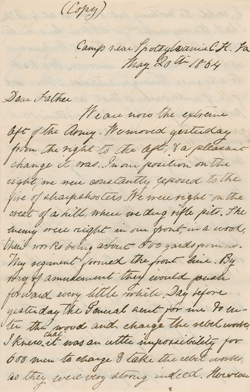 (Copy)
Camp near Spotsylvania C.H. Va
May 20th 1864
Dear Father
We are now the extreme
left of the Army. We moved yesterday
from the right to the left, & a pleasant
change it was. In our position on the
right we were constantly exposed to the
fire of sharpshooters. We were right on the
crest of a hill, where we dug rifle pits. The
enemy were right in our front in a wood,
their works being about 800 yards from us.
My regiment formed the front line. By
way of amusement they would push
forward every little while. Day before
yesterday the General sent for me to en-
ter the wood and charge the rebel works
I knew it was an utter impossibility for
600 men to charge & take the rebel works
as they were very strong indeed. However